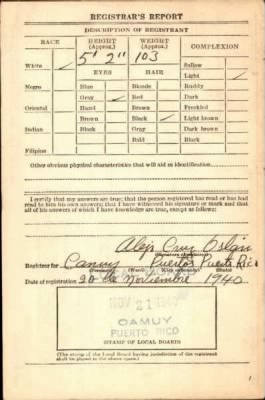 REGISTRAR'S REPORT
DESCRIPTION OF REGISTRANT
RACE HEIGHT (Approx.) WEIGHT (Approx.) COMPLEXION
5' 2" 103
White ✓ Sallow
EYES HAIR Light ✓
Negro Blue Blonde Ruddy
Gray ✓ Red Dark
Oriental Hazel Brown Freckled
Brown Black ✓ Light brown
Indian Black Gray Dark brown
Bald Black
Filipino
Other obvious physical characteristics that will aid in identification
I certify that my answers are true; that the person registered has read or has had
read to him his own answers; that I have witnessed his signature or mark and that
all of his answers of which I have knowledge are true, except as follows:
Alejo Cruz
Registrar for Camuy Puerto Rico
(State)
Date of registration 20 de Noviembre 1940
NOV 21 1940
CAMUY
PUERTO RICO
STAMP OF LOCAL BOARD
(The stamp of the Local Board having jurisdiction of the registrant
shall be placed in the above space.)